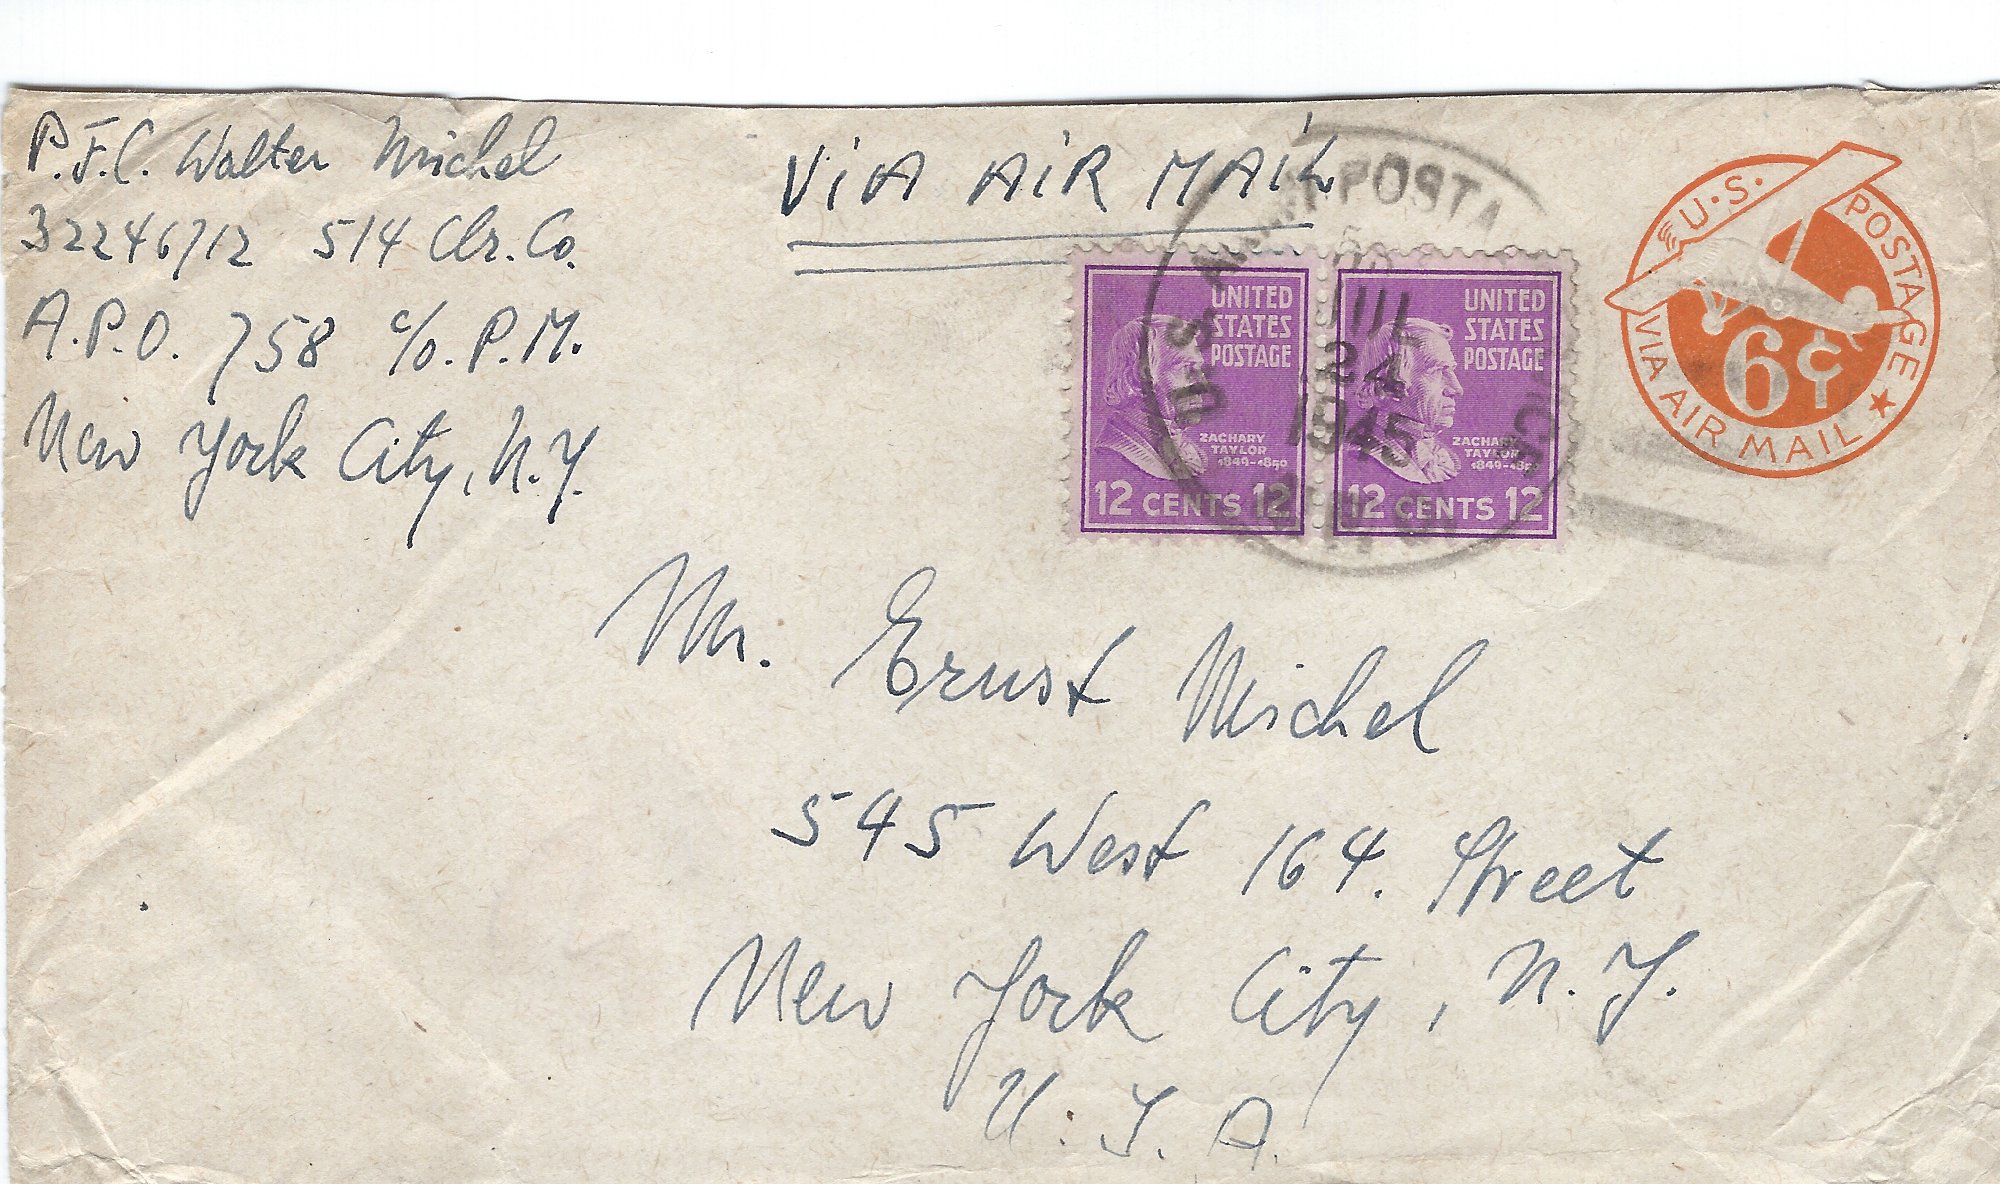 P.F.C. Walter Michel
32246712 514 Clr. Co.
A.P.O. 758 c/o. P.M.
New York City, N.Y.
VIA AIR MAIL
U.S. ARMY POSTA
JUL
24
1945
UNITED
STATES
POSTAGE
ZACHARY
TAYLOR
1849-1850
12 CENTS 12
UNITED
STATES
POSTAGE
ZACHARY
TAYLOR
1849-1850
12 CENTS 12
U.S. POSTAGE
6¢
VIA AIR MAIL
Mr. Ernst Michel
545 West 164. Street
New York City, N.Y.
U.S.A.